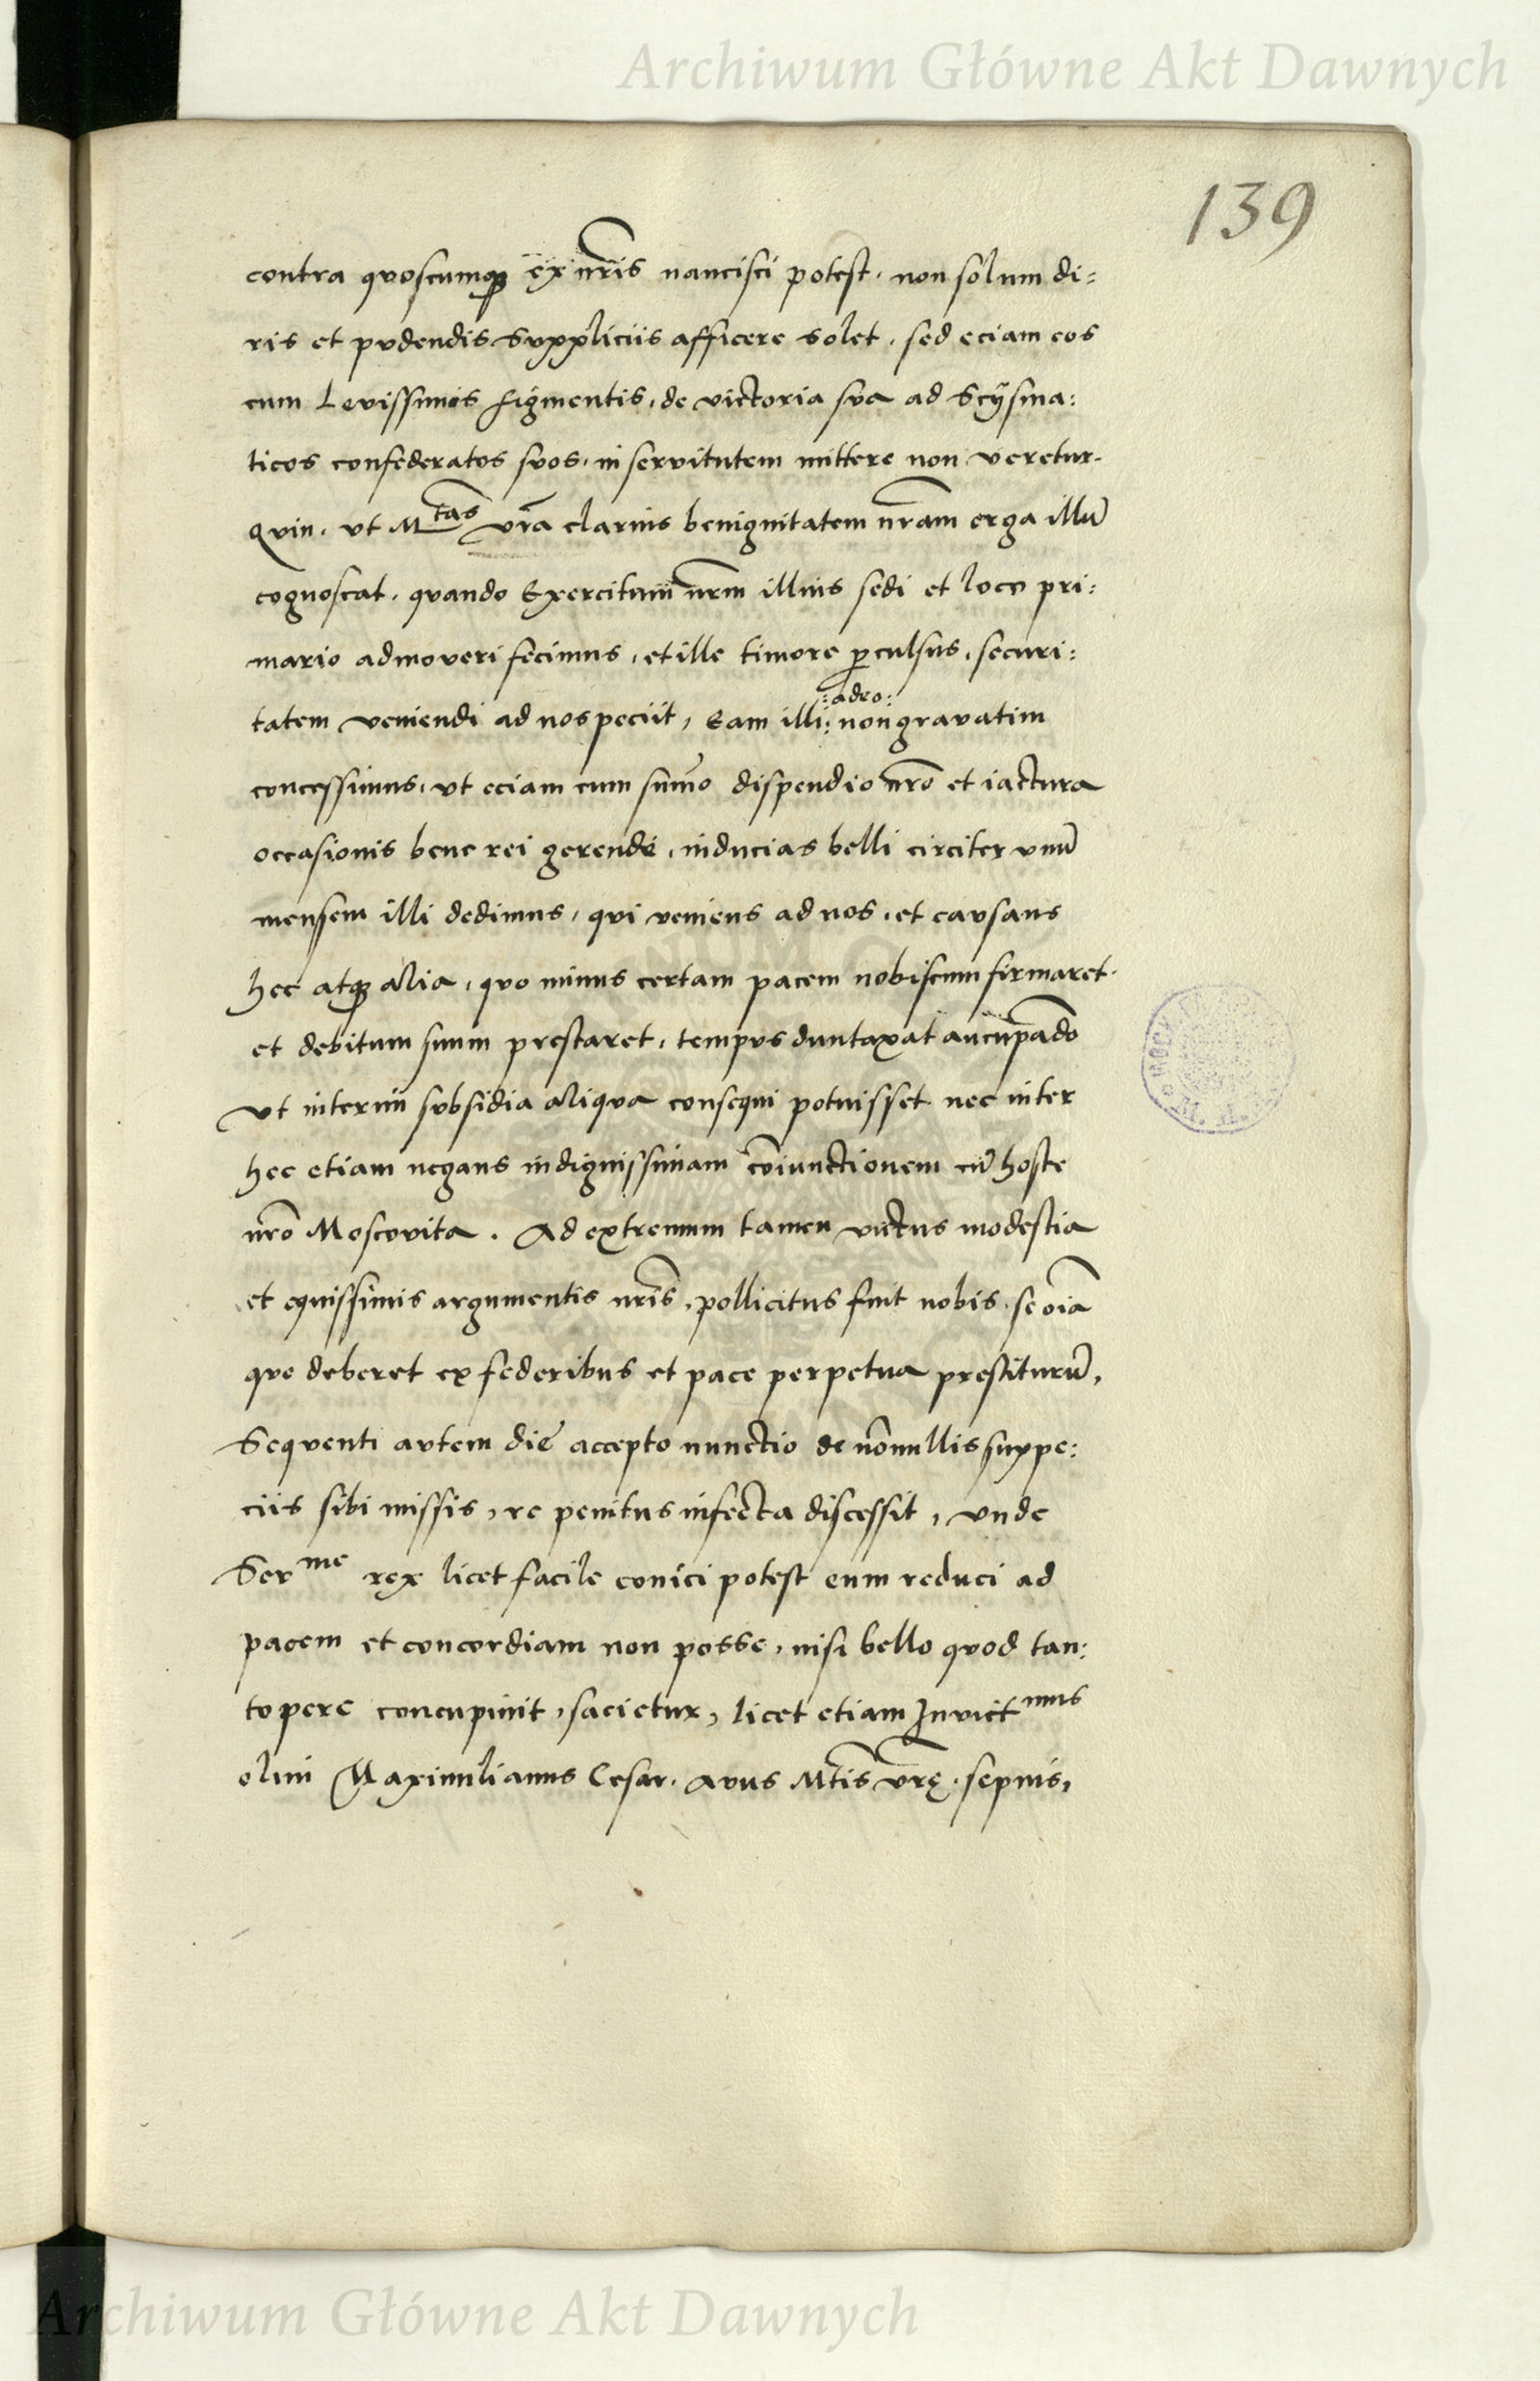 Archiwum Główne Akt Dawnych
139
contra quoscumqꝫ ex nr̃is nancisci potest. non solum di:
ris et pudendis suppliciis afficere solet, sed eciam eos
cum Levissimis figmentis, de victoria sua ad Scÿsma:
ticos confederatos suos, in servitutem mittere non veretur.
Quin, ut M^tas vr̃a clarius benignitatem nr̃am erga illũ
cognoscat, quando Exercitum nr̃m illius sedi et loco pri:
mario admoveri fecimus, et ille timore ꝑculsus, securi:
:adeo:
tatem veniendi ad nos peciit, Eam illi: non gravatim
concessimus, ut eciam cum sum̃o dispendio nr̃o et iactura
occasionis bene rei gerende, inducias belli circiter unũ
mensem illi dedimus, qui veniens ad nos, et causans
hec atqꝫ alia, quo minus certam pacem nobiscum firmaret.
et debitum suum prestaret, tempus duntaxat aucupãdo
ut interim subsidia aliqua consequi potuisset. nec inter
hec etiam negans indignissimam cõiunctionem cũ hoste
nr̃o Moscovita. Ad extremum tamen victus modestia
et equissimis argumentis nr̃is, pollicitus fuit nobis, se oĩa
que deberet ex federibus et pace perpetua prestiturũ,
Sequenti autem die accepto nunctio de nõnullis suppe:
ciis sibi missis, re penitus infecta discessit, unde
Ser^me rex licet facile conici potest eum reduci ad
pacem et concordiam non posse, nisi bello quod tan:
topere concupiuit, sacietur, licet etiam Invict^mus
olim Maximilianus Cesar. avus Mtĩs vr̃ę. sepius,
Archiwum Główne Akt Dawnych